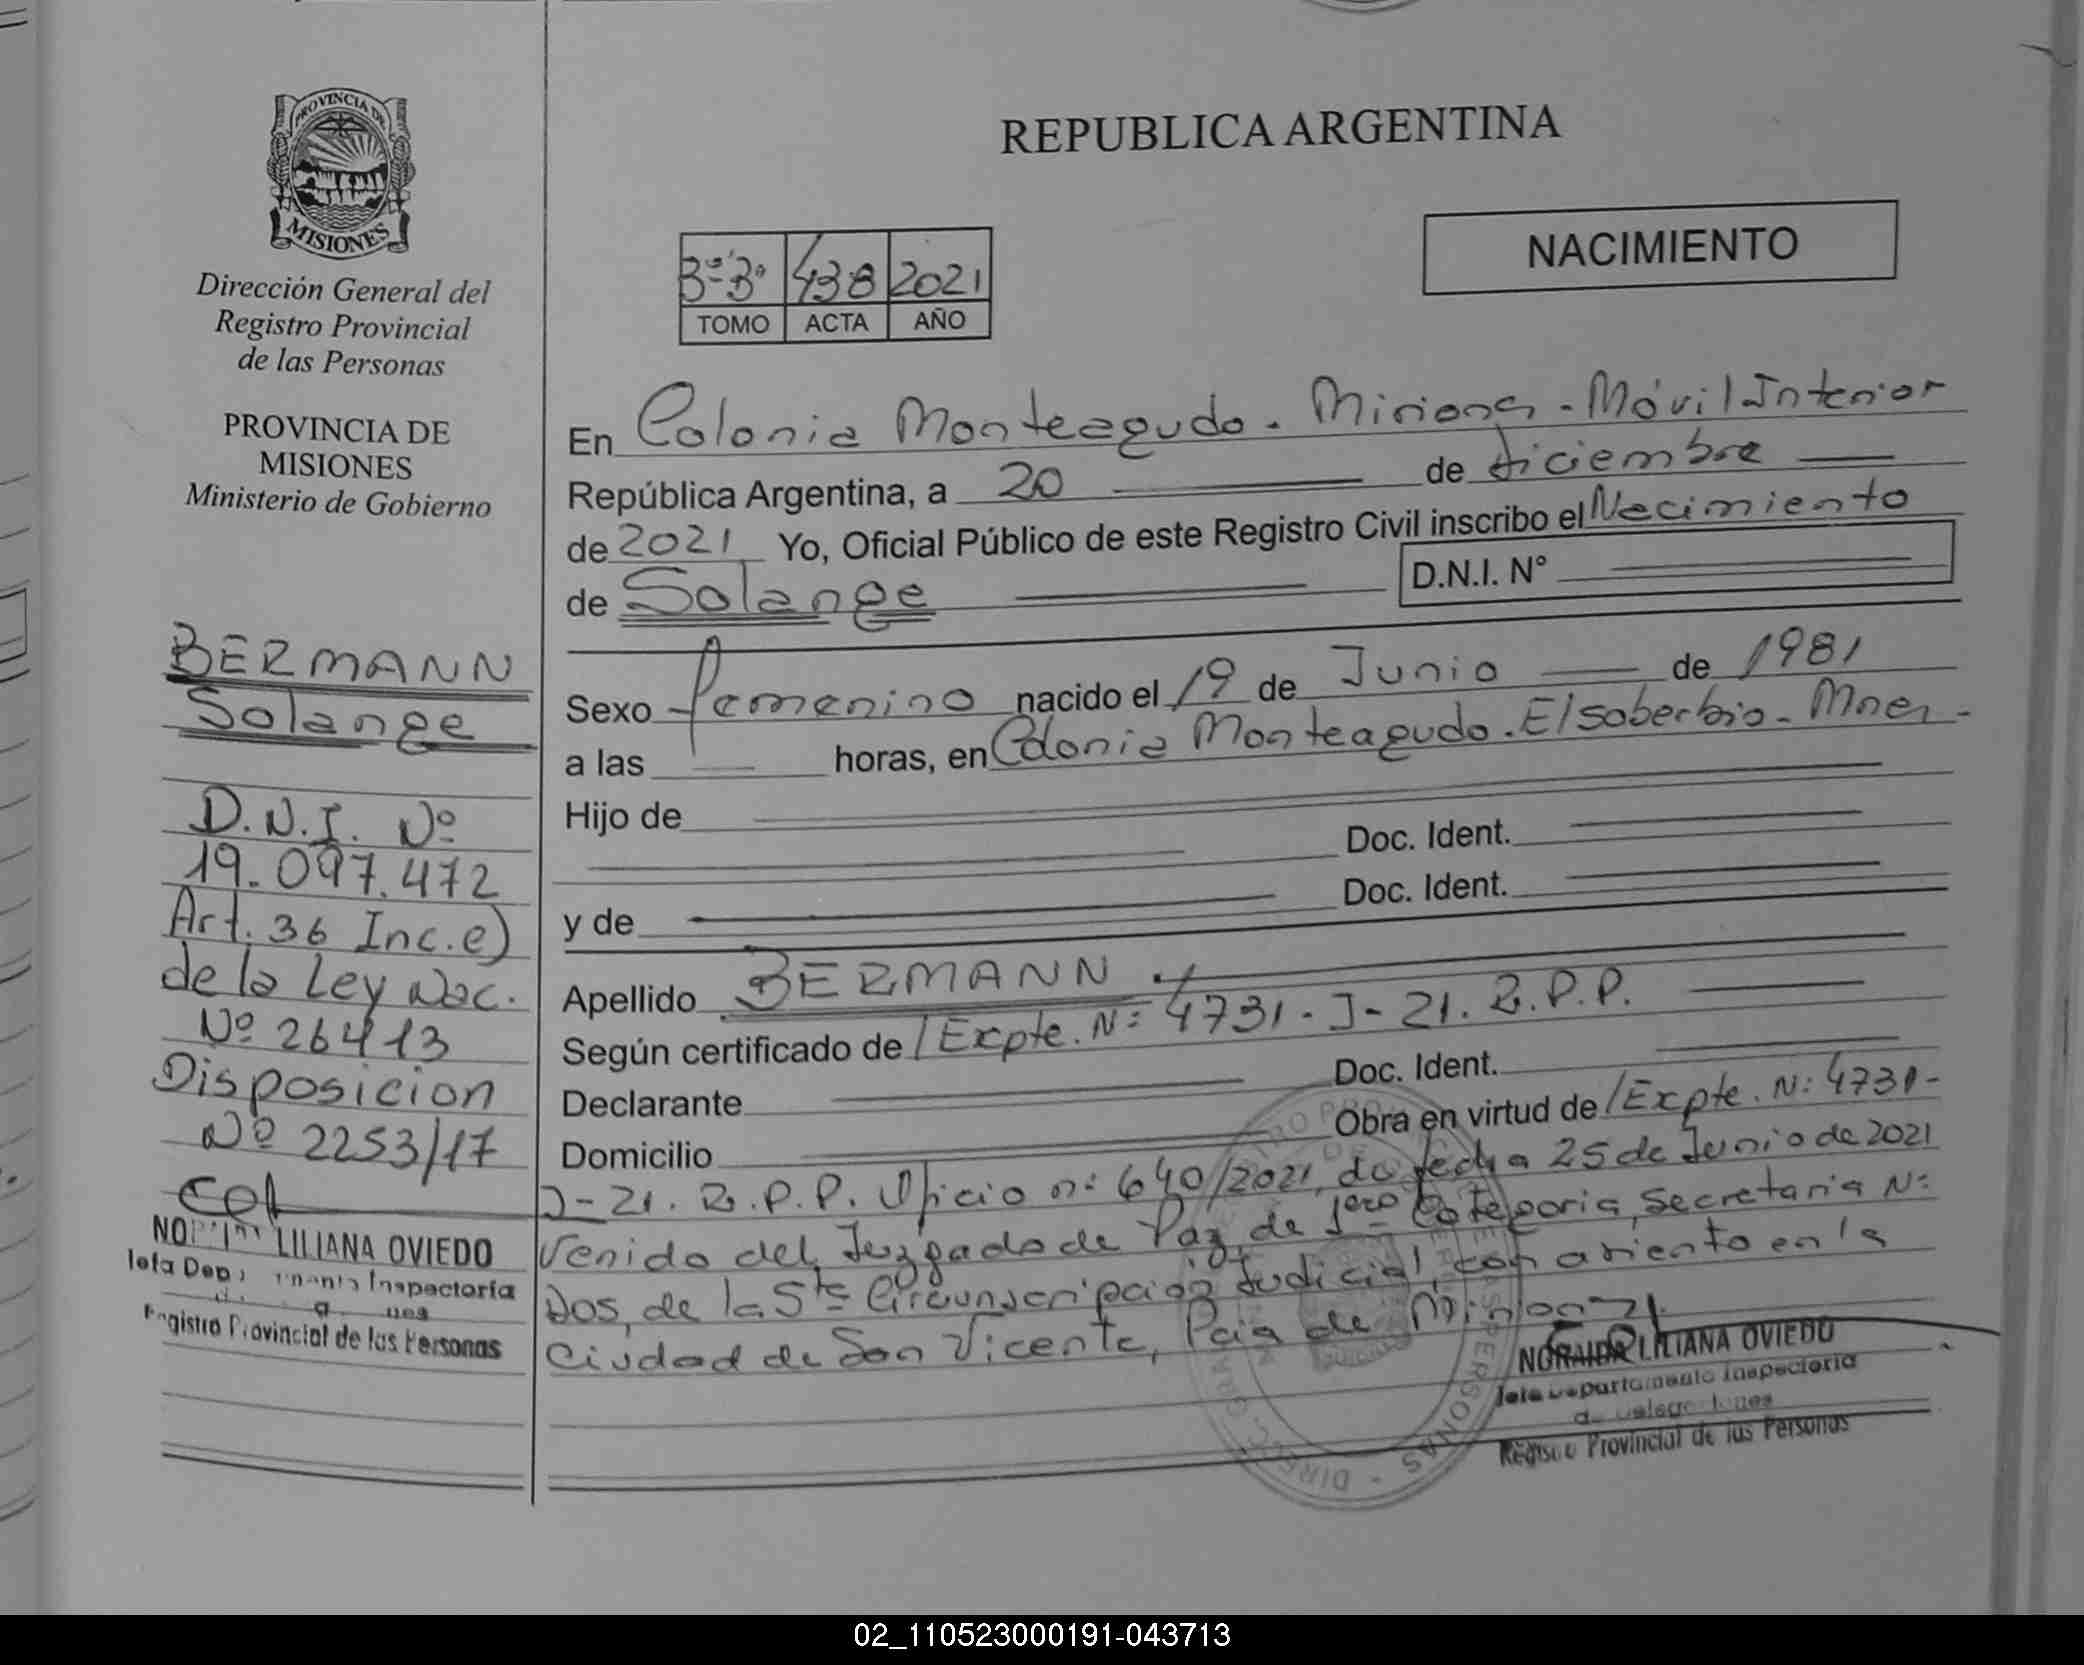 PROVINCIA DE
MISIONES
Dirección General del
Registro Provincial
de las Personas
PROVINCIA DE
MISIONES
Ministerio de Gobierno
BERMANN
Solange
D.N.I. Nº
19.097.472
Art. 36 Inc.e)
de la Ley Nac.
Nº 26413
Disposicion
Nº 2253/17
LILIANA OVIEDO
Inspectoría
Registro Provincial de las Personas
REPUBLICA ARGENTINA
NACIMIENTO
3º-3º 438 2021
TOMO ACTA AÑO
En Colonia Monteagudo - Misiones - Móvil Interior
República Argentina, a 20 de diciembre
de 2021 Yo, Oficial Público de este Registro Civil inscribo el Nacimiento
de Solange D.N.I. N°
Sexo femenino nacido el 19 de Junio de 1981
a las horas, en Colonia Monteagudo - El soberbio - Mnes -
Hijo de
Doc. Ident.
y de Doc. Ident.
Apellido BERMANN
Según certificado de /Expte. N: 4731 - J - 21. R.P.P.
Declarante Doc. Ident.
Domicilio Obra en virtud de /Expte. N: 4731-
J-21. R.P.P. Oficio n: 640/2021, de fecha 25 de Junio de 2021
venido del Juzgado de Paz de 1era Categoria, Secretaria N:
Dos, de la 5ta Circunscripcion Judicial, con asiento en la
Ciudad de San Vicente, Pcia de Misiones.
NORAIDA LILIANA OVIEDO
Jefe Departamento Inspectoría
de Delegaciones
Registro Provincial de las Personas
02_110523000191-043713